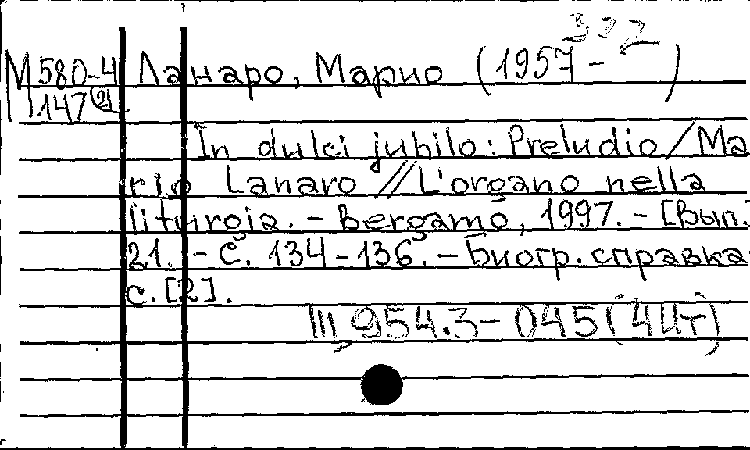 332
М 580-4 Ланаро, Марио (1957- )
147 (2)
In dulci jubilo: Preludio / Ma
rio Lanaro // L'organo nella
liturgia. - Bergamo, 1997. - [Вып.
21. - С. 134-136. - Биогр. справка:
с. [2].
Щ 954.3-045(4Ит)